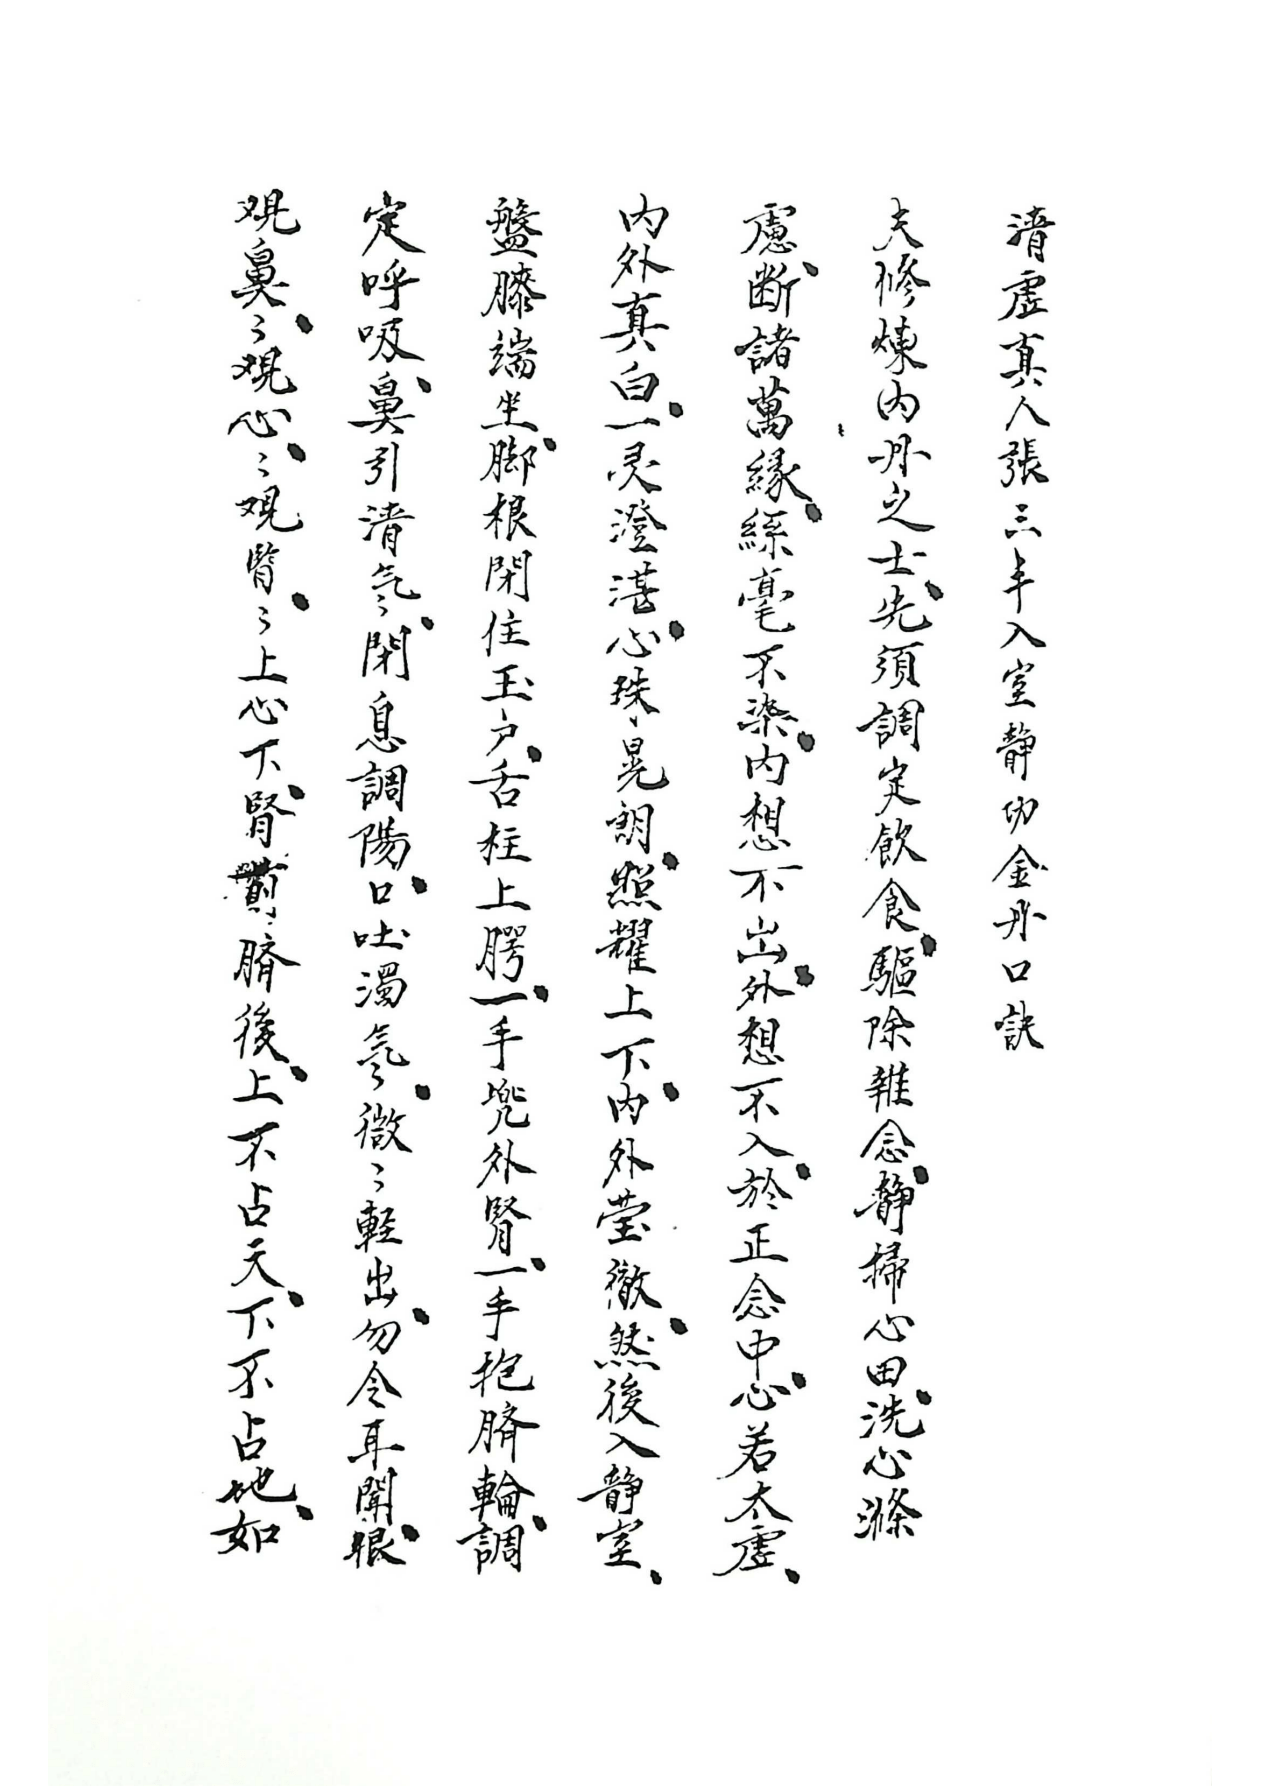 清虛真人張三丰入室静功金丹口訣
夫修煉内丹之士、先須調定飲食、驅除雜念、静掃心田、洗心滌
慮、断諸萬緣、絲毫不染、内想不出、外想不入、於正念中、心若太虛、
内外真白、一灵澄湛、心珠晃朗、照耀上下、内外莹徹、然後入静室、
盤膝端坐、脚根閉住玉户、舌柱上腭、一手兠外腎、一手抱臍輪、調
定呼吸、鼻引清氣、〻閉息調陽、口吐濁氣、〻微〻軽出、勿令耳聞、眼
观鼻、〻观心、〻观腎、〻上心下腎、前臍後、上不占天、下不占地、如